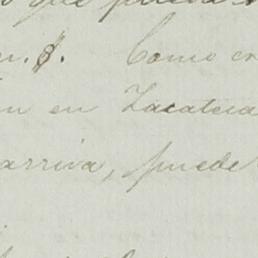 que pueda
n. §. Como
en Zacateca
arriva, puede